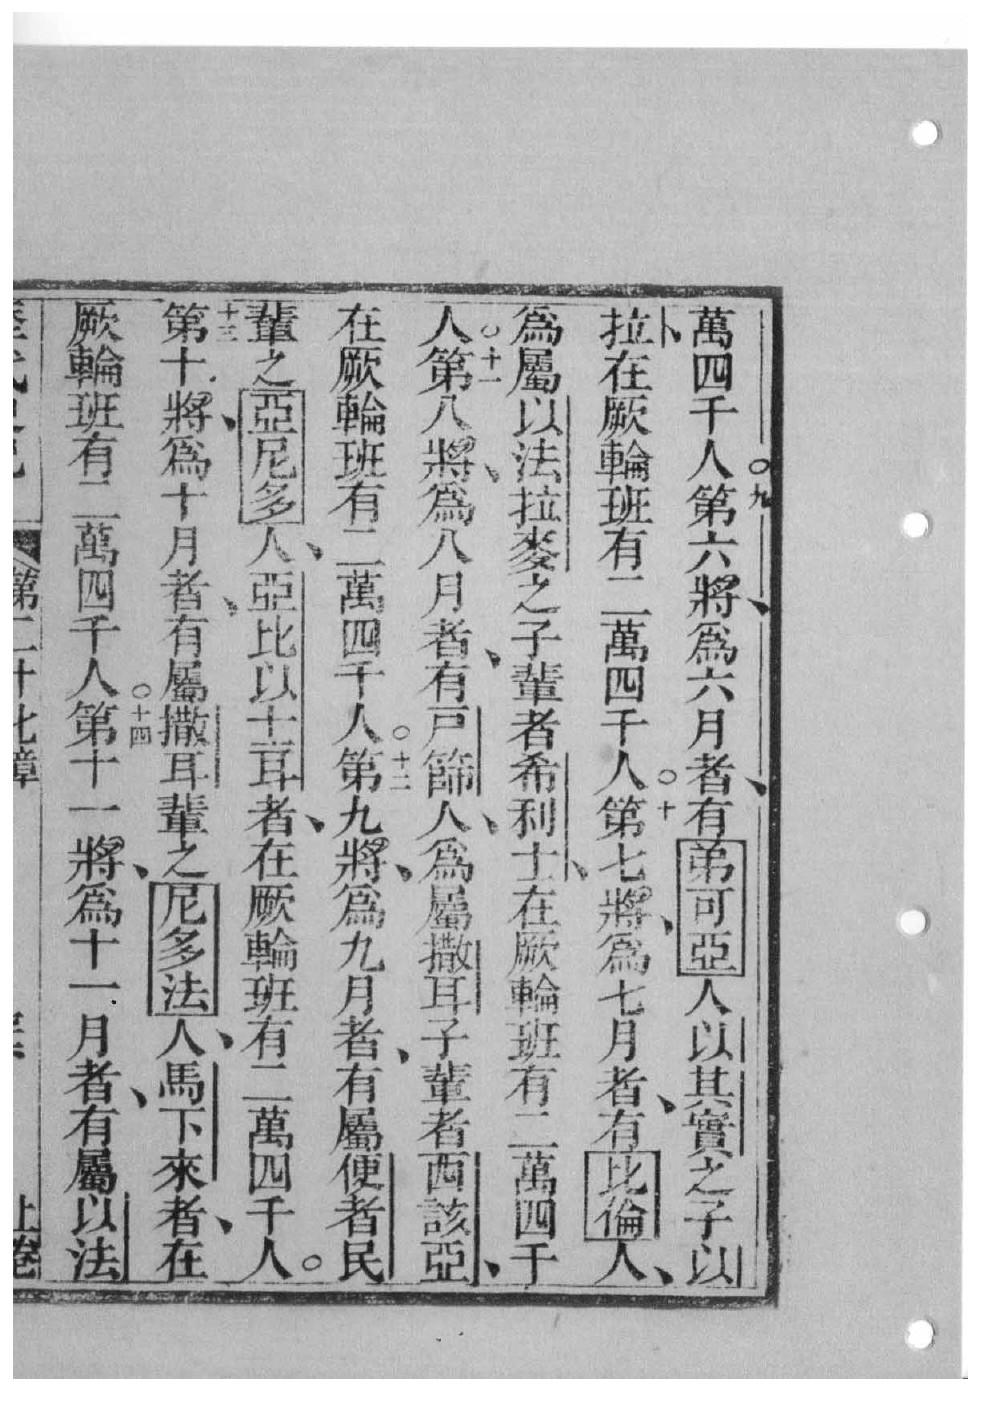 萬四千人○九第六將、爲六月者、有弟可亞人以其實之子以
拉在厥輪班有二萬四千人○十第七將、爲七月者、有比倫人、
爲屬以法拉麥之子輩者希利士、在厥輪班有二萬四千
人○十一第八將、爲八月者、有戸篩人、爲屬撒耳子輩者西該亞、
在厥輪班有二萬四千人○十二第九將、爲九月者、有屬便者民
輩之亞尼多人、亞比以士耳者、在厥輪班有二萬四千人○
十三第十將、爲十月者、有屬撒耳輩之尼多法人、馬下來者、在
厥輪班有二萬四千人○十四第十一將、爲十一月者、有屬以法
第二十七章 上卷